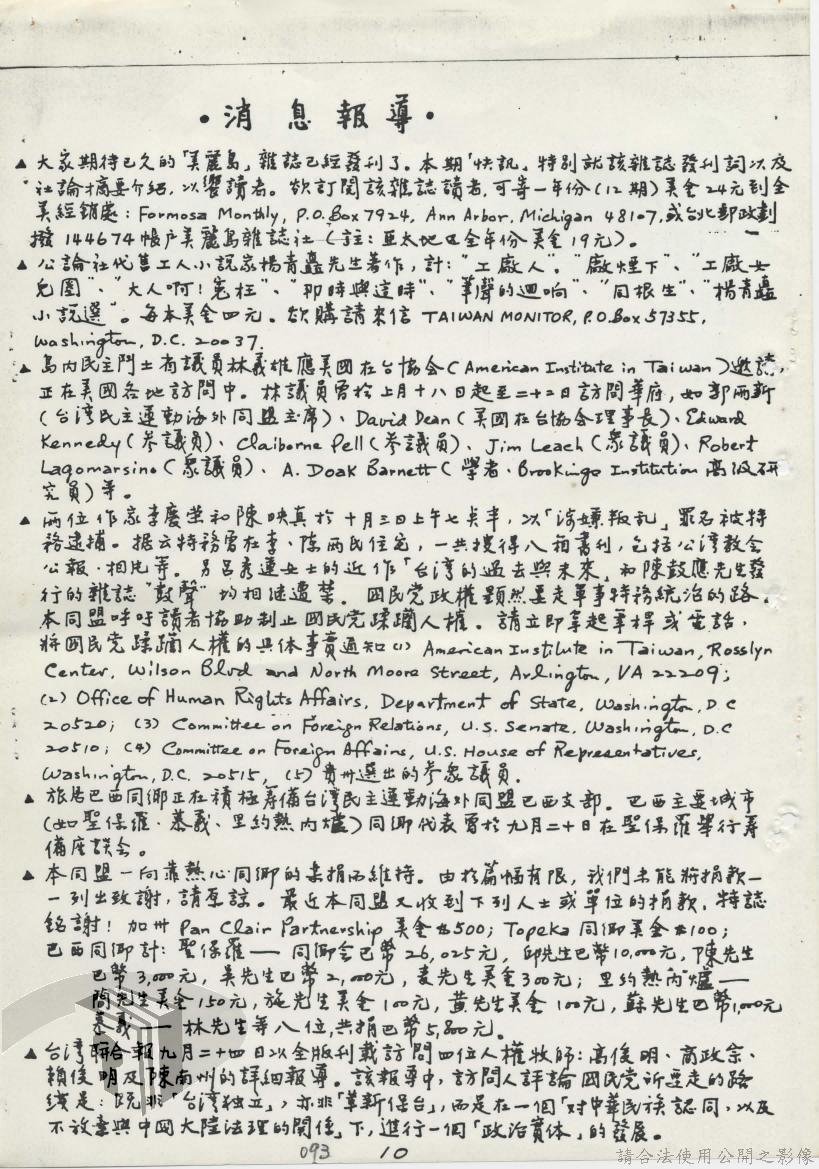 ·消息報導·
▲大家期待已久的「美麗島」雜誌已經發刊了。本期「快訊」特別就該雜誌發刊詞以及
社論摘要介紹,以饗讀者。欲訂閱該雜誌讀者,可寄一年份(12期)美金24元到全
美經銷處:Formosa Monthly, P.O.Box 7924, Ann Arbor, Michigan 48107,或台北郵政劃
撥144674帳户美麗島雜誌社(註:亞太地区全年份美金19元)。
▲公論社代售工人小説家楊青矗先生著作,計:"工廠人"。"廠煙下"、"工廠女
兒圈"、"大人啊!冤枉"、"即時與這時"、"筆聲的迴响"、"同根生"、"楊青矗
小説選"。每本美金四元。欲購請來信 TAIWAN MONITOR, P.O.Box 57355,
Washington, D.C. 20037.
▲島内民主鬥士省議員林義雄應美國在台協会(American Institute in Taiwan)邀請,
正在美國各地訪問中。林議員曾於上月十八日起至二十二日訪問華府,如郭雨新
(台湾民主運動海外同盟主席)、David Dean(美國在台協会理事長)、Edward
Kennedy(参議員)、Claiborne Pell(参議員)、Jim Leach(衆議員)、Robert
Lagomarsino(衆議員)、A. Doak Barnett(學者、Brookings Institution 高級研
究員)等。
▲兩位作家李慶榮和陳映真於十月三日上午七点半,以「涉嫌叛乱」罪名被特
務逮捕。据云特務曾在李、陳兩氏住宅,一共搜得八箱書刊,包括公湾教会
公報、相片等。另呂秀蓮女士的近作「台湾的過去與未來」和陳鼓應先生發
行的雜誌"鼓聲"均相继遭禁。國民党政權顕然要走軍事特務統治的路。
本同盟呼吁讀者協助制止國民党蹂躪人權。請立即拿起筆桿或電話,
將國民党蹂躪人權的具体事實通知(1) American Institute in Taiwan, Rosslyn
Center, Wilson Blvd and North Moore Street, Arlington, VA 22209;
(2) Office of Human Rights Affairs, Department of State, Washington, D.C
20520; (3) Committee on Foreign Relations, U.S. Senate, Washington, D.C
20510; (4) Committee on Foreign Affairs, U.S. House of Representatives,
Washington, D.C. 20515, (5)貴州選出的参衆議員.
▲旅居巴西同鄉正在積極籌備台湾民主運動海外同盟巴西支部。巴西主要城市
(如聖保羅、慕義、里約熱内爐)同鄉代表曾於九月二十日在聖保羅舉行籌
備座談会。
▲本同盟一向靠熱心同鄉的樂捐而維持。由於篇幅有限,我們未能將捐款一
一列出致謝,請原諒。最近本同盟又收到下列人士或單位的捐款,特誌
銘謝!加州 Pan Clair Partnership 美金$500; Topeka 同鄉美金$100;
巴西同鄉計:聖保羅——同鄉会巴幣26,025元,邱先生巴幣10,000元,陳先生
巴幣3,000元,吳先生巴幣2,000元,麦先生美金300元;里約熱内爐——
簡先生美金150元,施先生美金100元,黄先生美金100元,蘇先生巴幣1,000元
慕義——林先生等八位,共捐巴幣5,800元。
▲台湾聯合報九月二十四日以全版刊載訪問四位人權牧師:高俊明、商政宗、
賴俊明及陳南州的詳細報導。該報導中,訪問人評論國民党所要走的路
线是:既非「台湾獨立」,亦非「革新保台」,而是在一個「对中華民族認同,以及
不放棄與中國大陸法理的関係」下,進行一個「政治實体」的發展。
093 10
請合法使用公開之影像